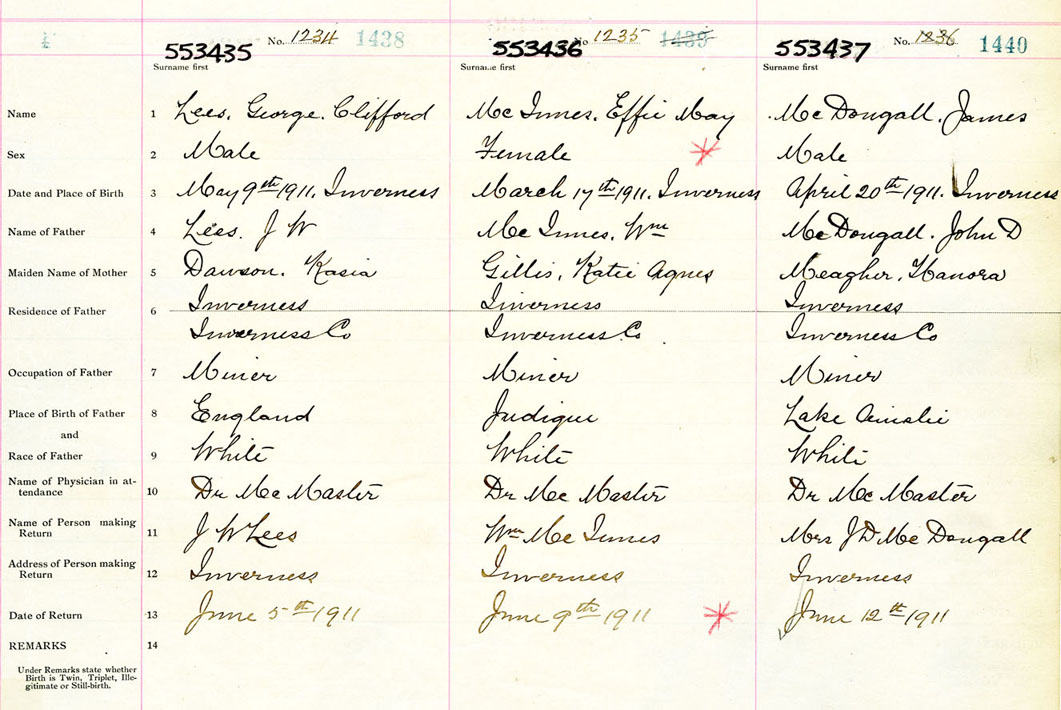 No. 1234 1438 No 1235 1439 No. 1236 1440
553435 553436 553437
Surname first Surname first Surname first
Name 1 Lees, George, Clifford Mc Innes, Effie May Mc Dougall, James
Sex 2 Male Female Male
Date and Place of Birth 3 May 9th 1911, Inverness March 17th 1911, Inverness April 20th 1911. Inverness
Name of Father 4 Lees. J W Mc Innes, Wm Mc Dougall. John D
Maiden Name of Mother 5 Dawson. Kasia Gillis, Katie Agnes Meagher, Hanora
Residence of Father 6 Inverness Inverness Inverness
Inverness Co Inverness Co Inverness Co
Occupation of Father 7 Miner Miner Miner
Place of Birth of Father 8 England Judique Lake Ainslie
and
Race of Father 9 White White White
Name of Physician in at-
tendance 10 Dr Mc Master Dr Mc Master Dr Mc Master
Name of Person making
Return 11 J W Lees Wm Mc Innes Mrs J D Mc Dougall
Address of Person making
Return 12 Inverness Inverness Inverness
Date of Return 13 June 5th 1911 June 9th 1911 June 12th 1911
REMARKS 14
Under Remarks state whether
Birth is Twin, Triplet, Ille-
gitimate or Still-birth.